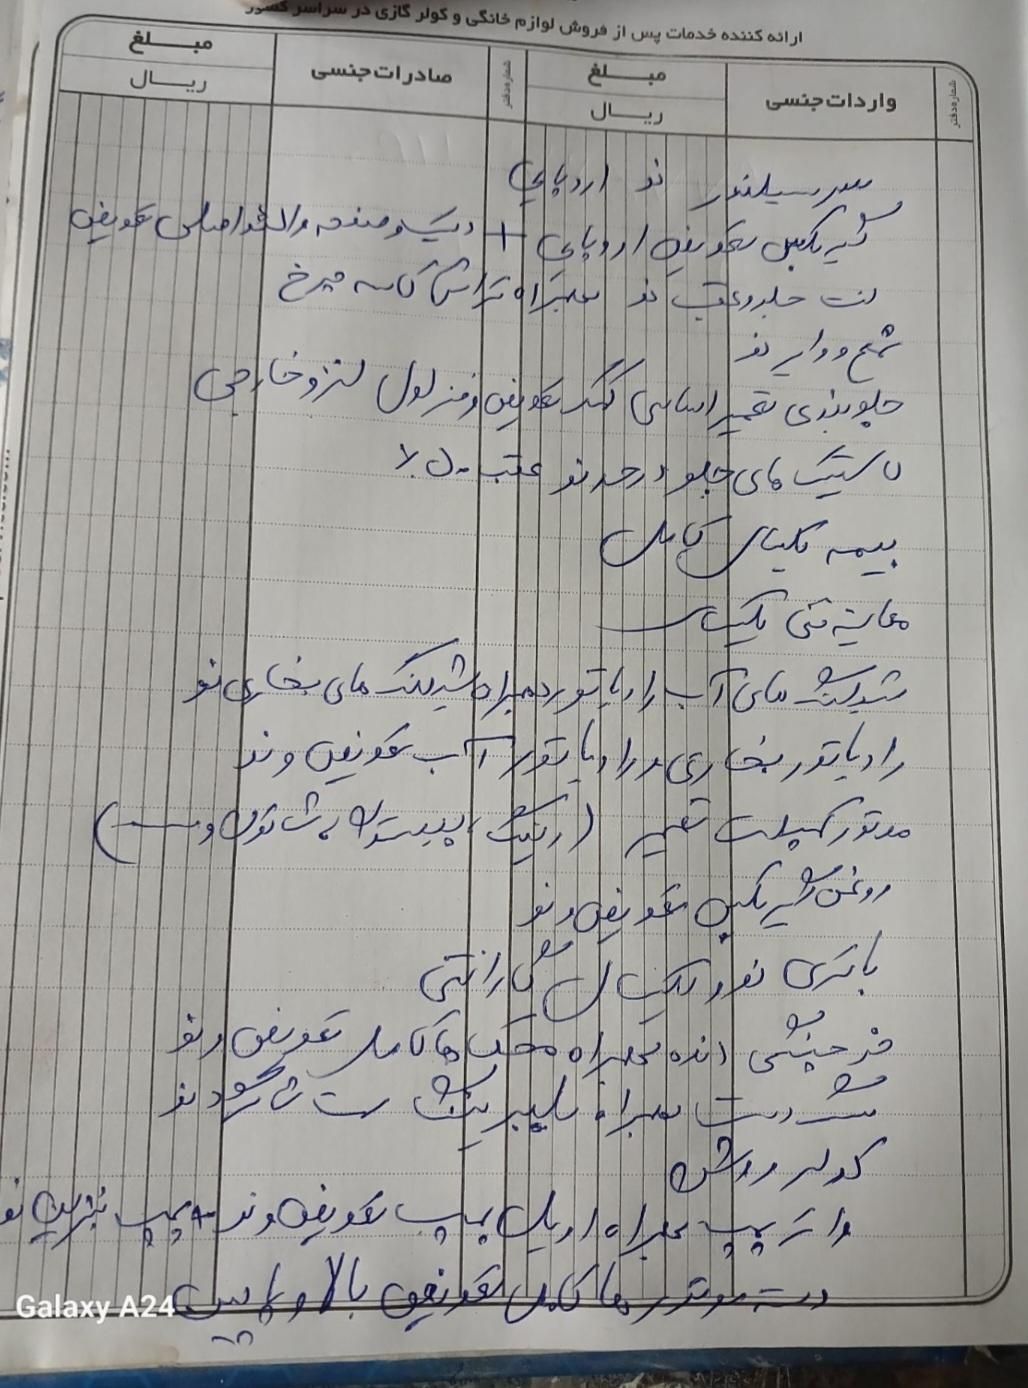 ارائه کننده خدمات پس از فروش لوازم خانگی و کولر گازی در سراسر کشور
شماره دفتر واردات جنسی مبلغ ریال شماره دفتر صادرات جنسی مبلغ ریال
سر سیلندر نو اروپایی
گیربکس تعویض اروپایی + دیسک و صفحه اصلی تعویض
لنت جلو و عقب نو بهمراه تراش کاسه چرخ
شمع و وایر نو
جلوبندی تعمیر اساسی کمک تعویض و فنر لول لنزو خارجی
لاستیک های جلو درحد نو عقب ۵۰٪
بیمه یکسال کامل
معاینه فنی یکسال
شیلنگ های آب رادیاتور بهمراه شیلنگ های بخاری نو
رادیاتور بخاری و رادیاتور آب تعویض و نو
موتور کمپلت تعمیر (رینگ، پیستون، شاتون و ...)
روغن گیربکس تعویض و نو
باتری نو و یکسال گارانتی
همراه کامل تعویض و نو
دست بهمراه بلبرینگ نو
کولر روشن
واتر پمپ بهمراه اویل پمپ تعویض و نو + پمپ بنزین نو
دسته موتور ها کامل تعویض بالا و پایین
Galaxy A24